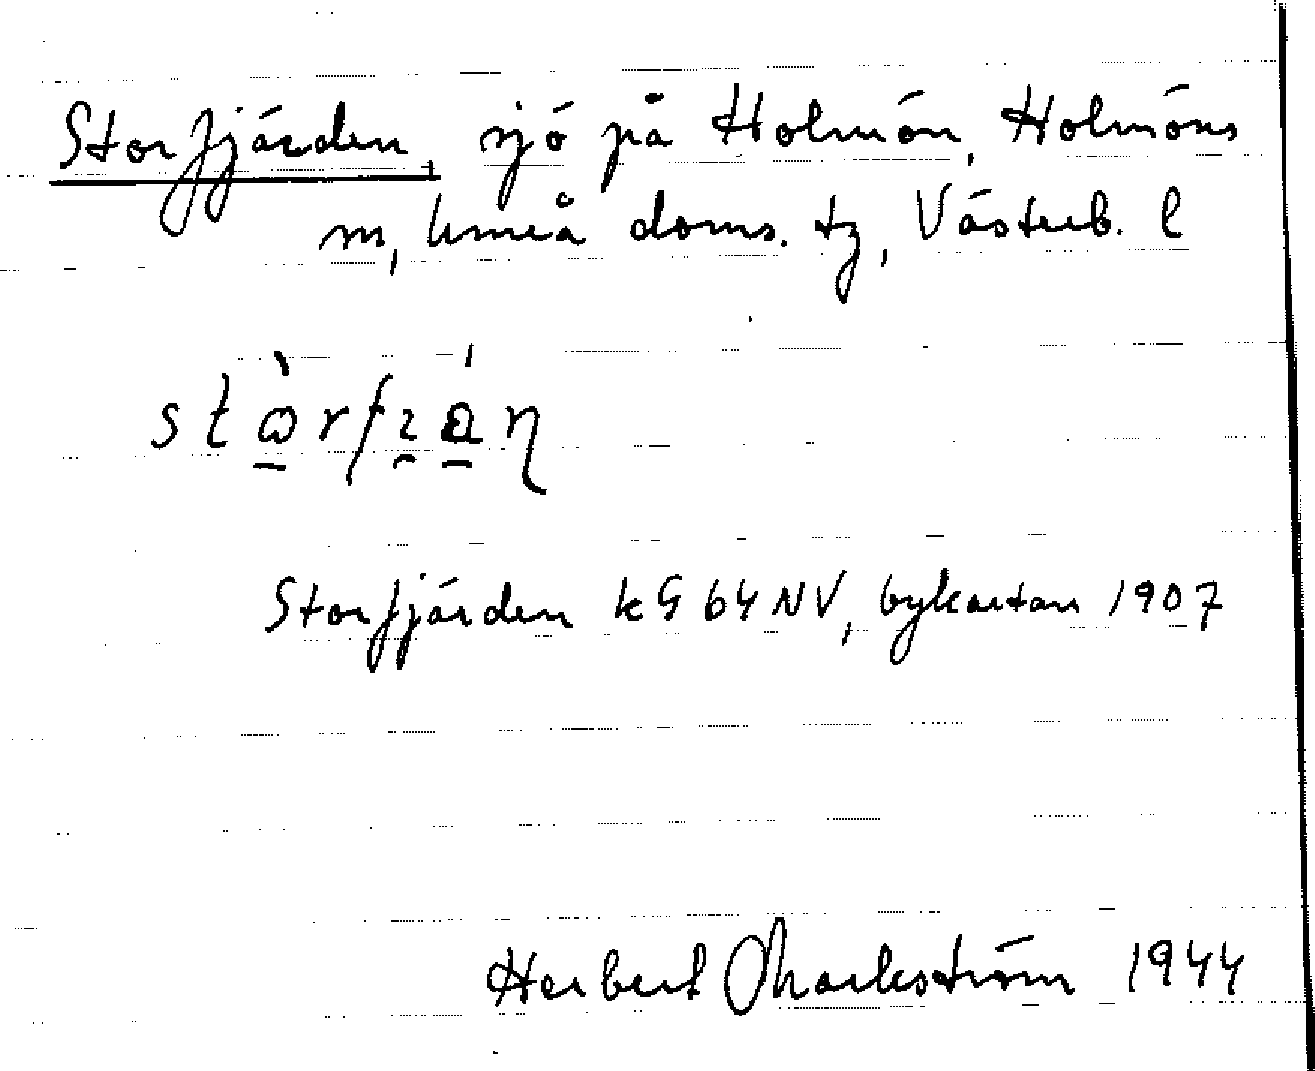 Storfjärden, sjö på Holmön, Holmöns
m, Umeå doms. tg, Västerb. l
Storfjärden kG 64 NV, bykartan 1907
Herbert Markström 1944